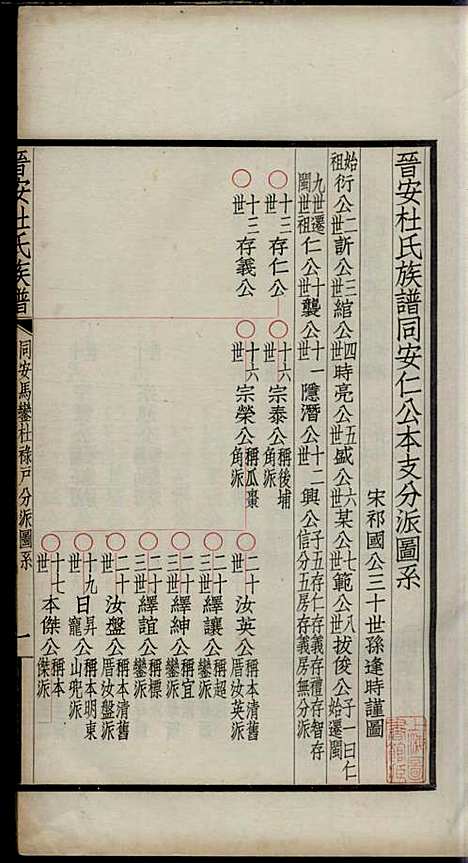 晉安杜氏族譜同安仁公本支分派圖系
宋祁國公三十世孫逢時謹圖
始祖衍公二世訢公三世綰公四世時亮公五世盛公六世某公七世範公八世拔俊公子一曰仁始遷閩
九世遷閩世祖仁公十世襲公十一世隱潛公十二世興公子五存仁存義存禮存智存信分五房存義房無分派
十三世存仁公
十三世存義公
十六世宗泰公稱後埔角派
十六世宗榮公稱瓜棗角派
二十世汝英公稱本清舊厝汝英派
二十三世繹讓公稱超鑾派
二十三世繹紳公稱宜鑾派
二十三世繹誼公稱標鑾派
二十世汝盤公稱本清舊厝汝盤派
十九世日寵公昇公稱本明東山兜派
十七世本傑公稱本傑派
晉安杜氏族譜
同安馬鑾杜祿戶分派圖系
一